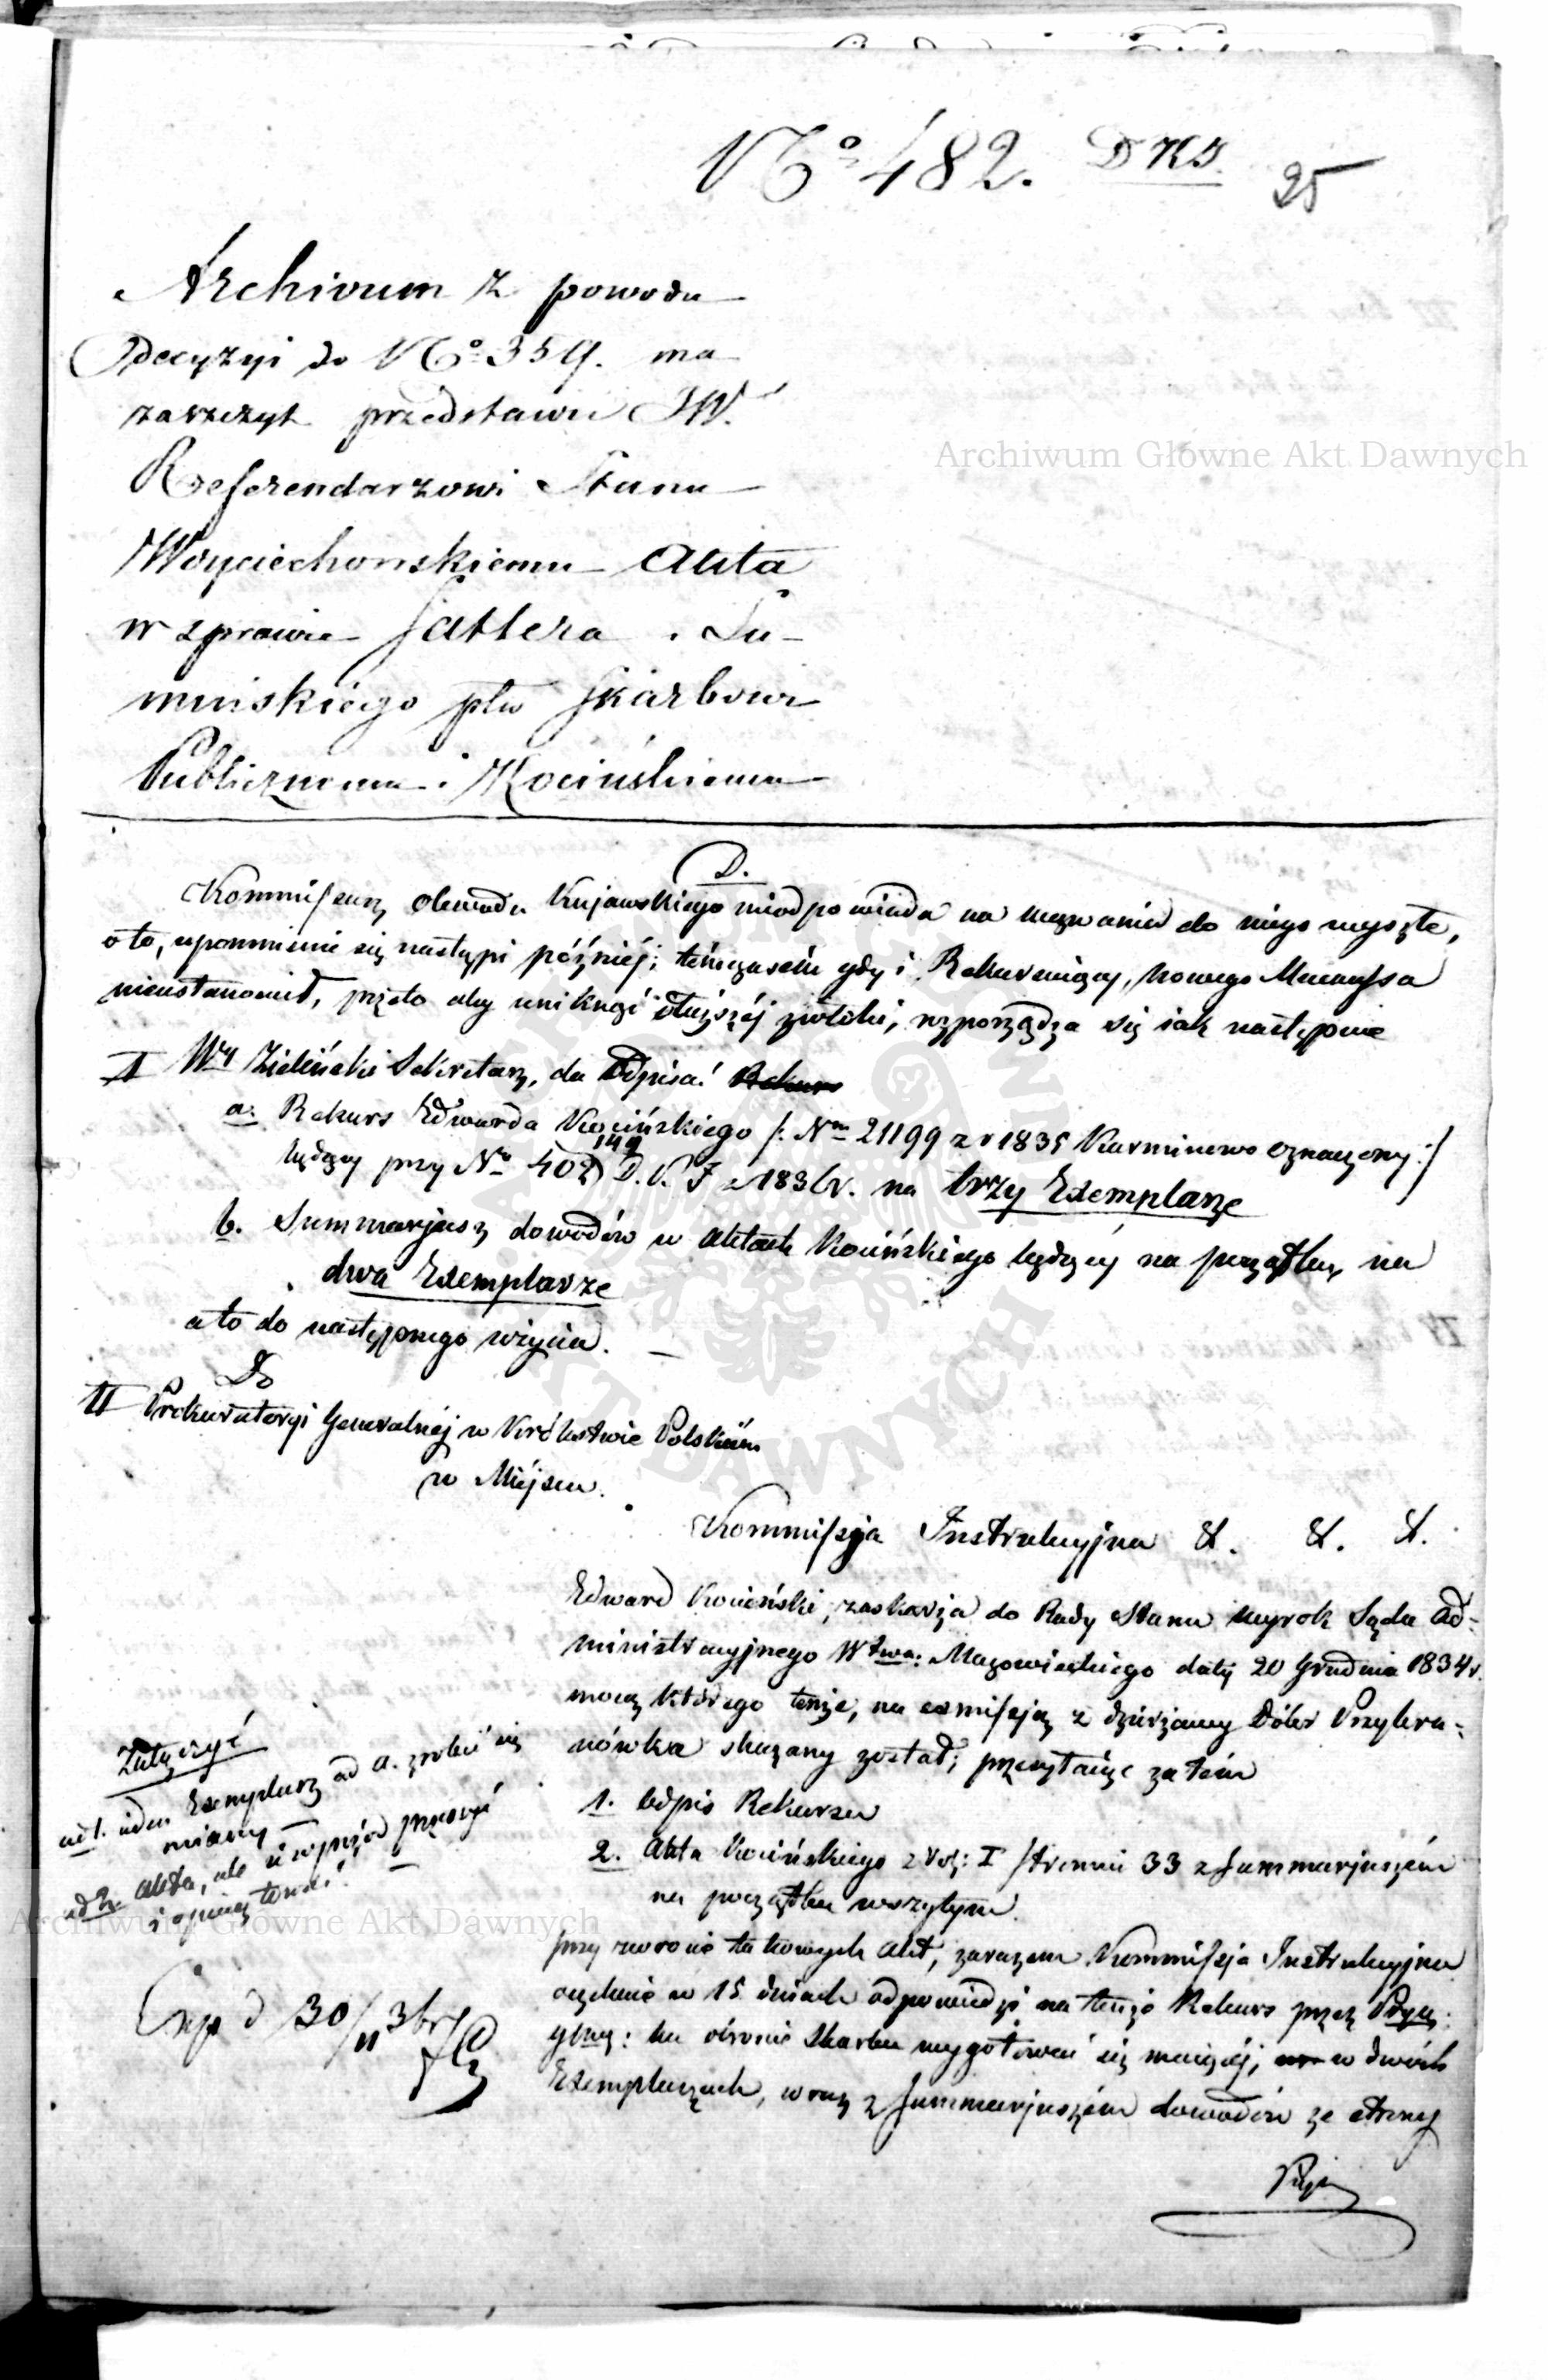 No 482. DKJ.
25
Archivum z powodu
Decyzyi do No 359. ma
zaszczyt przedstawić JW.
Referendarzowi Stanu
Woyciechowskiemu Akta
w sprawie Sattlera i Su-
mińskiego ptw Skarbowi
Publicznemu i Kocińskiemu
D.
Kommissarz Obwodu Kujawskiego nieodpowiada na wezwanie do niego wyszłe,
o to, upomnienie się nastąpi później; tymczasem gdy i Rekurrujący, nowego Mecenassa
nieustanowił, przeto aby uniknąć dłuższéj zwłoki, rozporządza się jak następuie
I Wny Zieliński Sekretarz, da odpisać Rekurs
a. Rekurs Edwarda Kocińskiego /: Nrm 21199 z r 1835 Karminowo oznaczony :/
będący przy No 402/149 D.K.J z 1836 r. na trzy Exemplarze
b. Summarjusz dowodów w Aktach Kocińskiego będący na początku, na
dwa Exemplarze
a to do następnego użycia. —
Do
II Prokuratoryi Generalnéj w Królestwie Polskiém
w Miéjscu.
Kommissja Instrukcyjna &. &. &.
Edward Kociński, zaskarża do Rady Stanu wyrok Sądu Ad-
ministracyjnego Wtwa: Mazowieckiego daty 20 Grudnia 1834 r.
mocą którego tenże, na exmissją z dzierżawy Dóbr Przybra-
nówka skazany został; przesyłaiąc zatém
1. Odpis Rekursu
2. Akta Kocińskiego z Vol: I stronnic 33 z Summarjuszém
na początku wszytym.
przy zwrocie takowych Akt, zarazem Kommissja Instrukcyjna
oczekuie w 15 dniach odpowiedzi na tenże Rekurs przez
ku obronie Skarbu wygotować się maiącéj, w dwóch
Exemplarzach, wraz z Summarjuszém dowodów ze strony
Załączyć
ad 1. jeden Exemplarz ad a. zrobić się
miany —
ad 2. Akta, ale
Exp d 30/11 3br